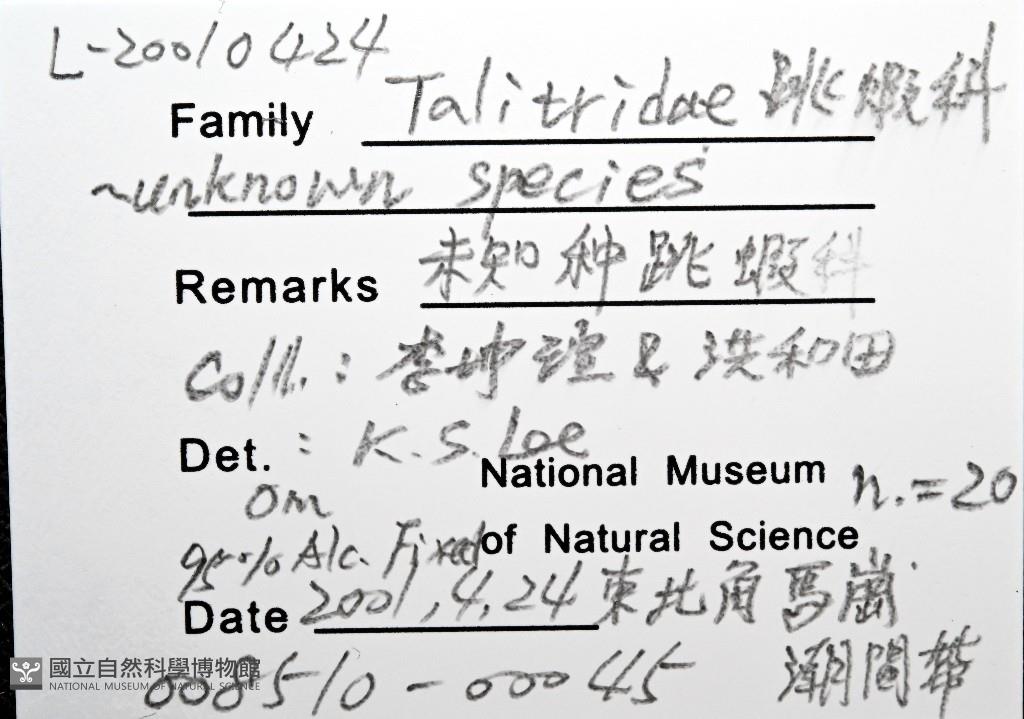 L-20010424
Family Talitridae 跳蝦科
~unknown species
Remarks 未知种跳蝦科
Coll. : 李坤瑄 & 洪和田
Det. : K.S. Loe
National Museum n.=20
0m
of Natural Science
95% Alc. Fixed
Date 2001,4,24 東北角馬崗
潮間帶
008510-00045
國立自然科學博物館
NATIONAL MUSEUM OF NATURAL SCIENCE